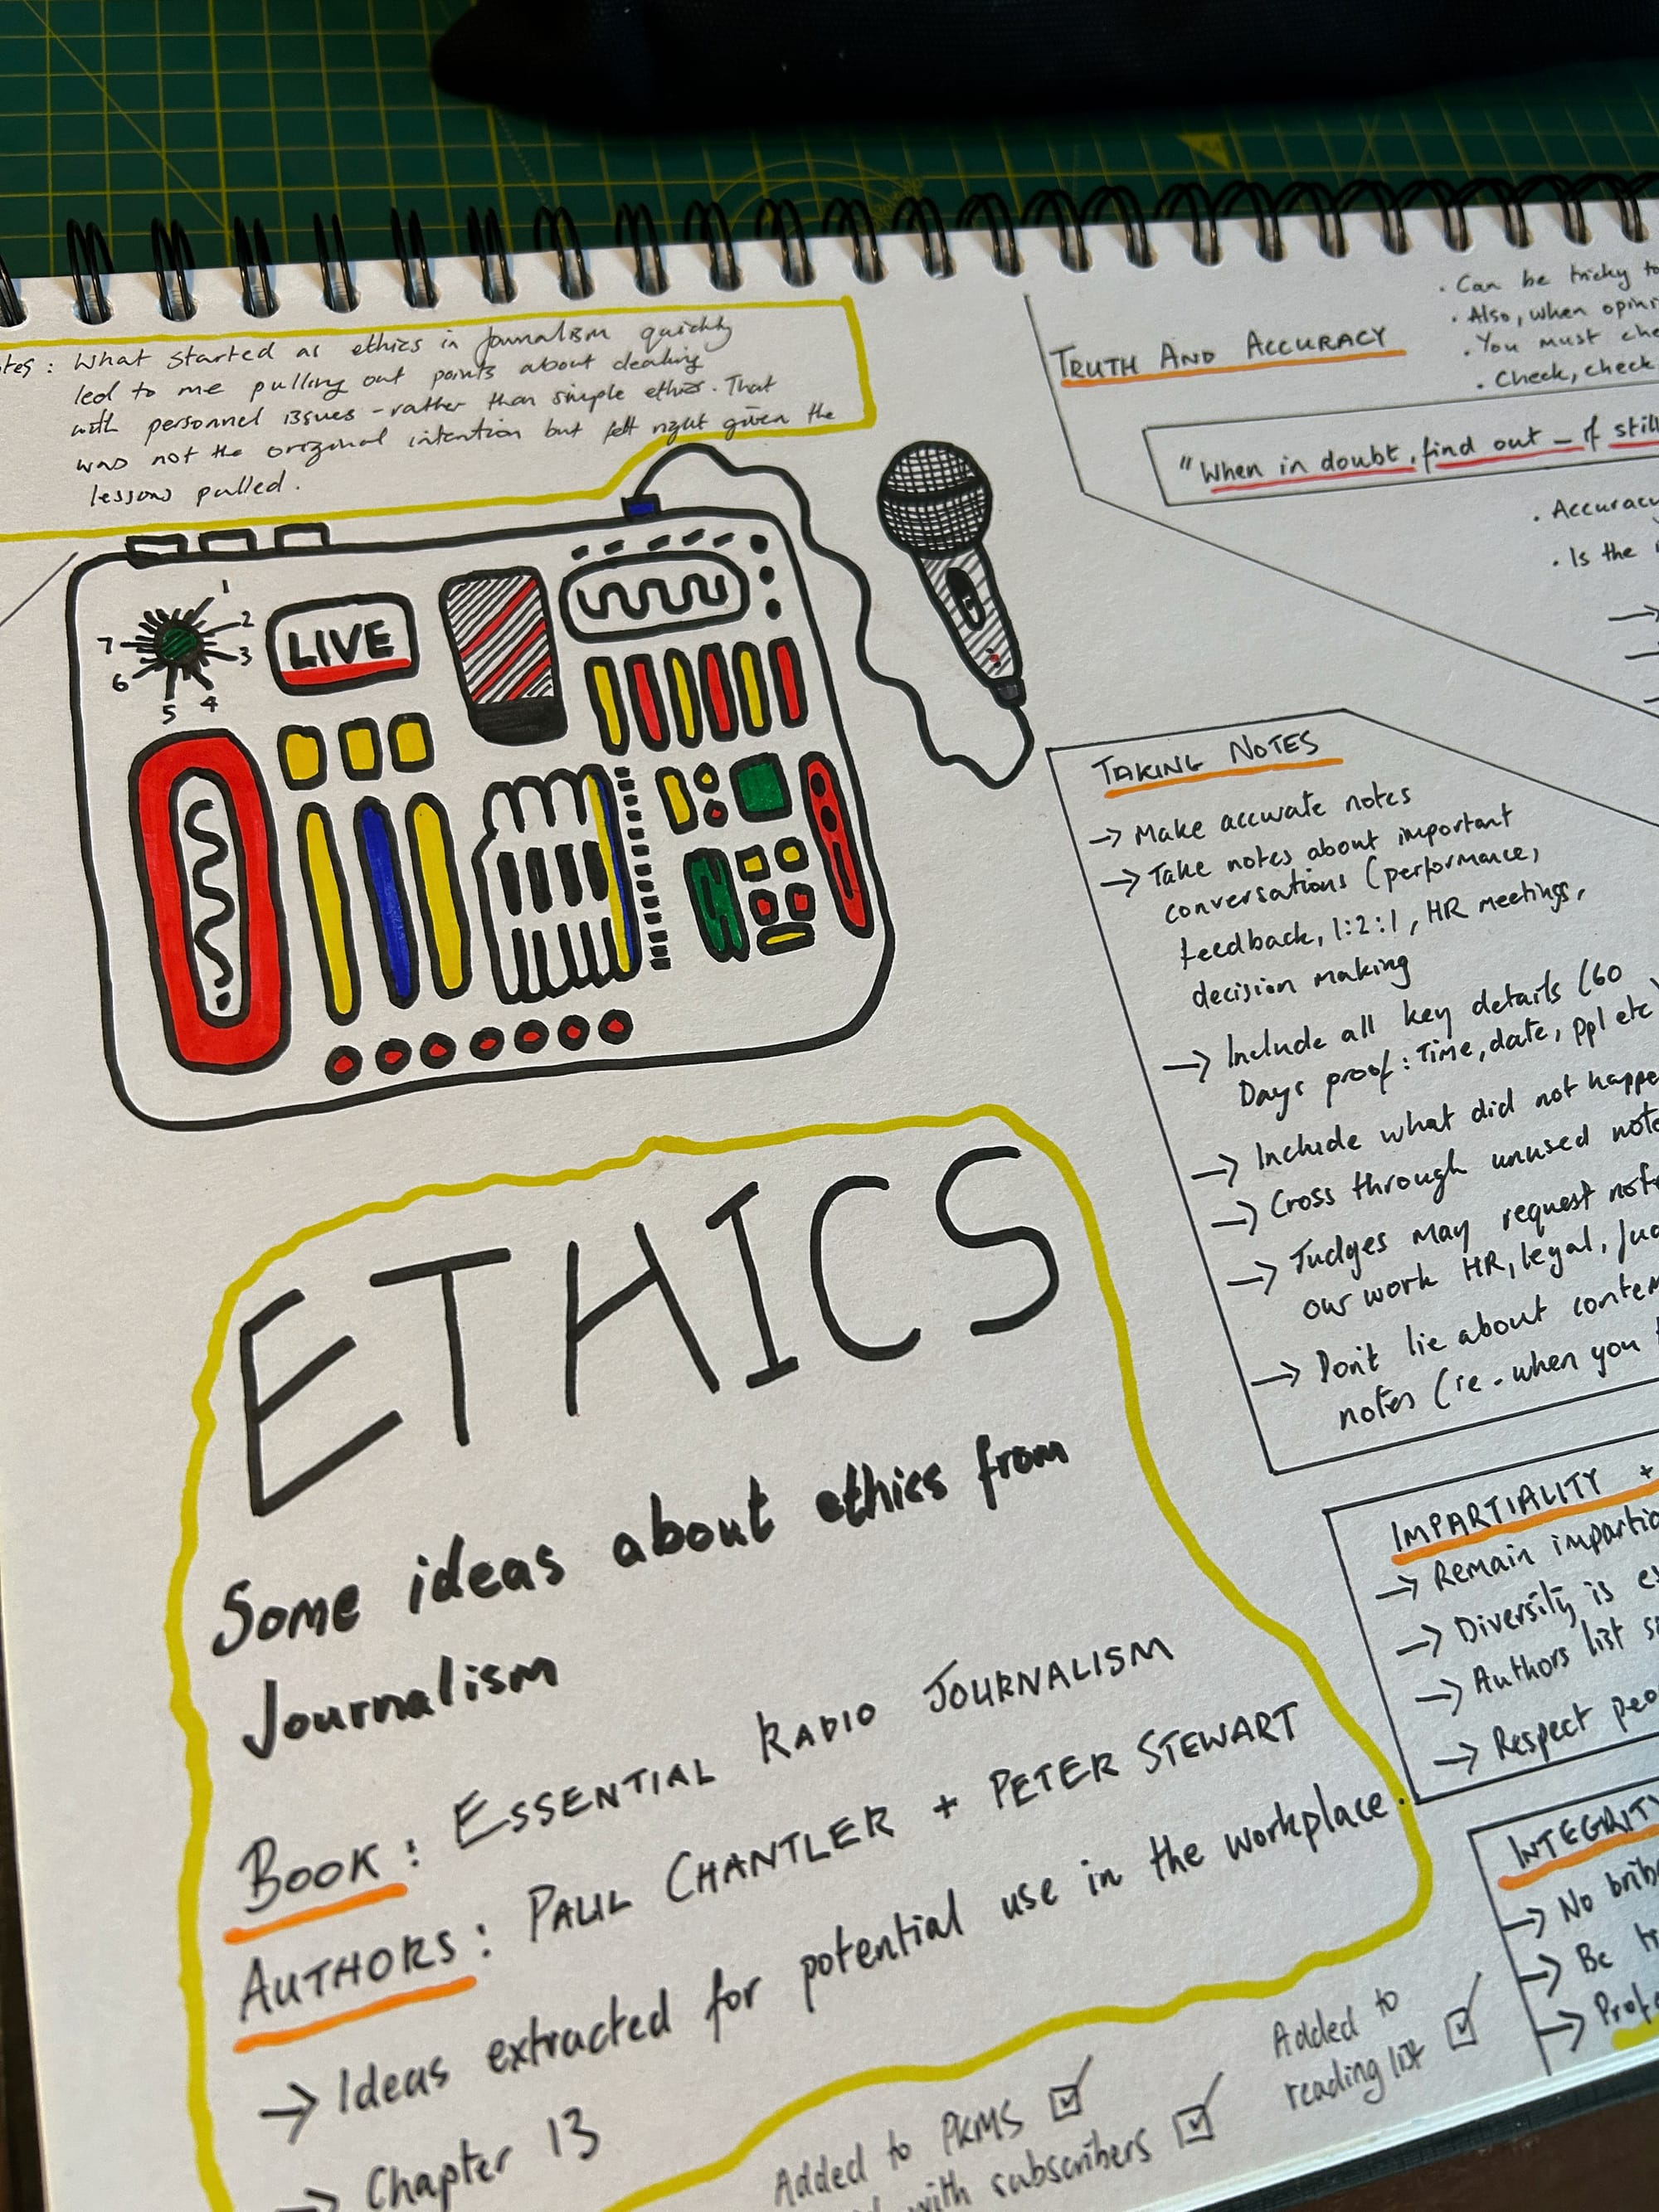 tes: What started as ethics in journalism quickly
led to me pulling out points about dealing
with personnel issues - rather than simple ethics. That
was not the original intention but felt right given the
lessons pulled.
1
2
3
4
5
6
7
LIVE
ETHICS
Some ideas about ethics from
Journalism
BOOK: ESSENTIAL RADIO JOURNALISM
AUTHORS: PAUL CHANTLER + PETER STEWART
→ Ideas extracted for potential use in the workplace.
→ Chapter 13
Added to PKMS
with subscribers
Added to
reading list
TRUTH AND ACCURACY
· Can be tricky to
· Also, when opini
· You must che
· Check, check
"When in doubt, find out - if still
· Accuracy
· Is the
TAKING NOTES
→ Make accurate notes
→ Take notes about important
conversations (performance,
feedback, 1:2:1, HR meetings,
decision making
→ Include all key details (60
Days proof: Time, date, ppl etc)
→ Include what did not happe
→ Cross through unused note
→ Judges may request note
our work HR, legal, jud
→ Don't lie about conten
notes (ie - when you
IMPARTIALITY +
→ Remain impartia
→ Diversity is es
→ Authors list s
→ Respect peo
INTEGRITY
→ No brib
→ Be tr
→ Profe